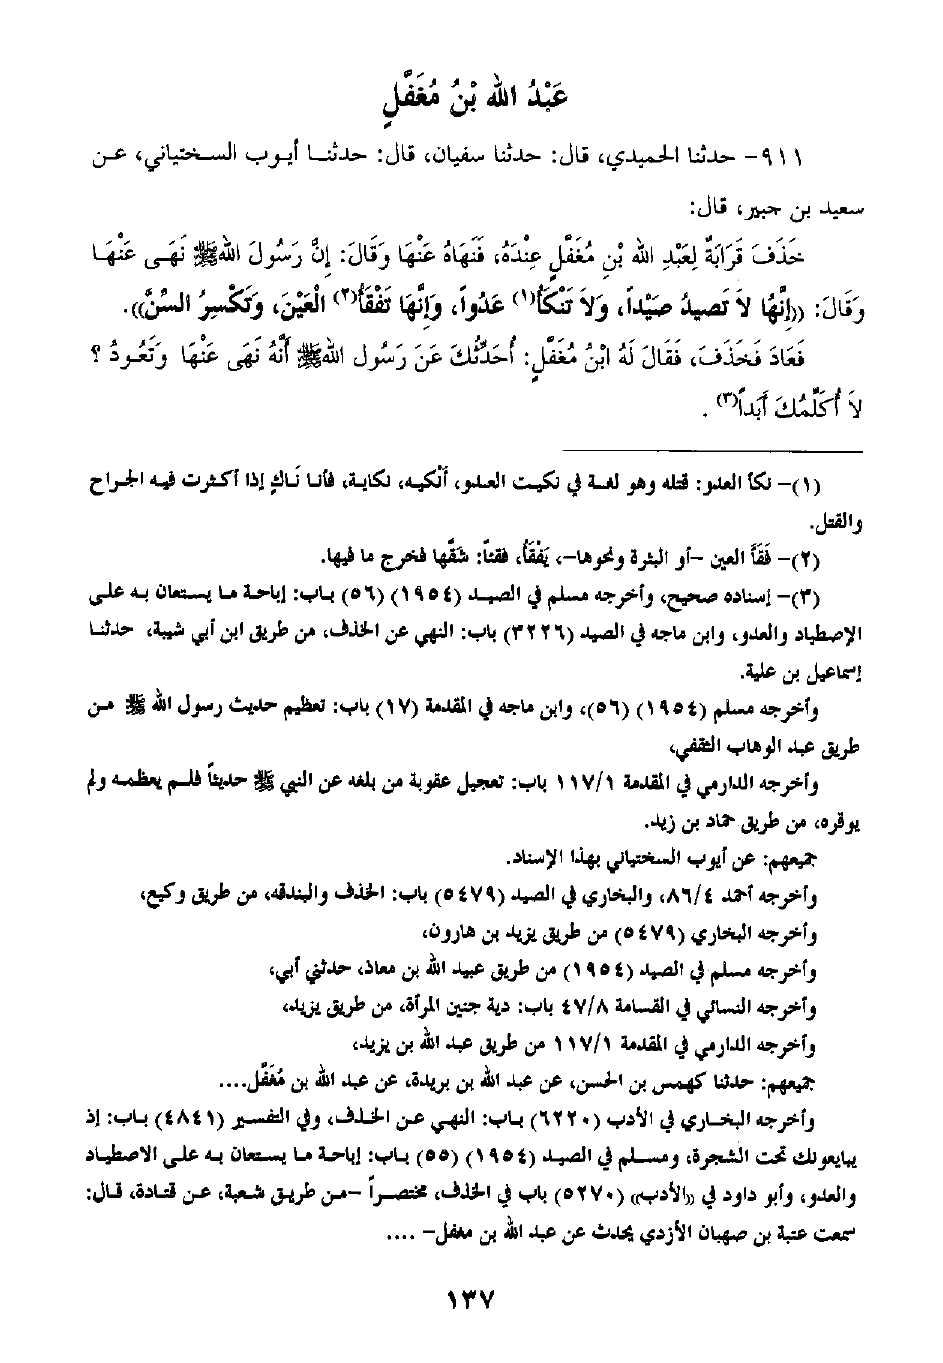 عَبْدُ الله بْنُ مُغَفَّلٍ
٩١١- حدثنا الحميدي، قال: حدثنا سفيان، قال: حدثنا أيوب السختياني، عن
سعيد بن جبير، قال:
خَذَفَ قَرَابَةٌ لِعَبْدِ الله بْنِ مُغَفَّلٍ عِنْدَهُ، فَنَهَاهُ عَنْهَا وَقَالَ: إِنَّ رَسُولَ اللهِ ﷺ نَهَى عَنْهَا
وَقَالَ: ((إِنَّهَا لاَ تَصِيدُ صَيْداً، وَلاَ تَنْكَأُ(١) عَدُواً، وَإِنَّهَا تَفْقَأُ(٢) الْعَيْنَ، وَتَكْسِرُ السِّنَّ)).
فَعَادَ فَخَذَفَ، فَقَالَ لَهُ ابْنُ مُغَفَّلٍ: أُحَدِّثُكَ عَنْ رَسُول اللهِ ﷺ أَنَّهُ نَهَى عَنْهَا وَتَعُودُ ؟
لاَ أُكَلِّمُكَ أَبَداً(٣) .
(١)- نكأ العدو: قتله وهو لغة في نكيت العدو، أَنْكيه، نكاية، فأنا نَاكٍ إذا أكثرت فيه الجراح
والقتل.
(٢)- فَقَأَ العين -أو البثرة ونحوها-، يَفْقَأُ، فقئاً: شقَّها فخرج ما فيها.
(٣)- إسناده صحيح، وأخرجه مسلم في الصيد (١٩٥٤) (٥٦) باب: إباحة ما يستعان به على
الإصطياد والعدو، وابن ماجه في الصيد (٣٢٢٦) باب: النهي عن الخذف، من طريق ابن أبي شيبة، حدثنا
إسماعيل بن علية.
وأخرجه مسلم (١٩٥٤) (٥٦)، وابن ماجه في المقدمة (١٧) باب: تعظيم حديث رسول الله ﷺ من
طريق عبد الوهاب الثقفي،
وأخرجه الدارمي في المقدمة ١١٧/١ باب: تعجيل عقوبة من بلغه عن النبي ﷺ حديثاً فلم يعظمه ولم
يوقره، من طريق حماد بن زيد.
جميعهم: عن أيوب السختياني بهذا الإسناد.
وأخرجه أحمد ٨٦/٤، والبخاري في الصيد (٥٤٧٩) باب: الخذف والبندقه، من طريق وكيع،
وأخرجه البخاري (٥٤٧٩) من طريق يزيد بن هارون،
وأخرجه مسلم في الصيد (١٩٥٤) من طريق عبيد الله بن معاذ، حدثني أبي،
وأخرجه النسائي في القسامة ٤٧/٨ باب: دية جنين المرأة، من طريق يزيد،
وأخرجه الدارمي في المقدمة ١١٧/١ من طريق عبد الله بن يزيد،
جميعهم: حدثنا كهمس بن الحسن، عن عبد الله بن بريدة، عن عبد الله بن مُغَفَّل....
وأخرجه البخاري في الأدب (٦٢٢٠) باب: النهي عن الخذف، وفي التفسير (٤٨٤١) باب: إذ
يبايعونك تحت الشجرة، ومسلم في الصيد (١٩٥٤) (٥٥) باب: إباحة ما يستعان به على الاصطياد
والعدو، وأبو داود في ((الأدب)) (٥٢٧٠) باب في الخذف، مختصراً -من طريق شعبة، عن قتادة، قال:
سمعت عتبة بن صهبان الأزدي يحدث عن عبد الله بن مغفل- ....
١٣٧